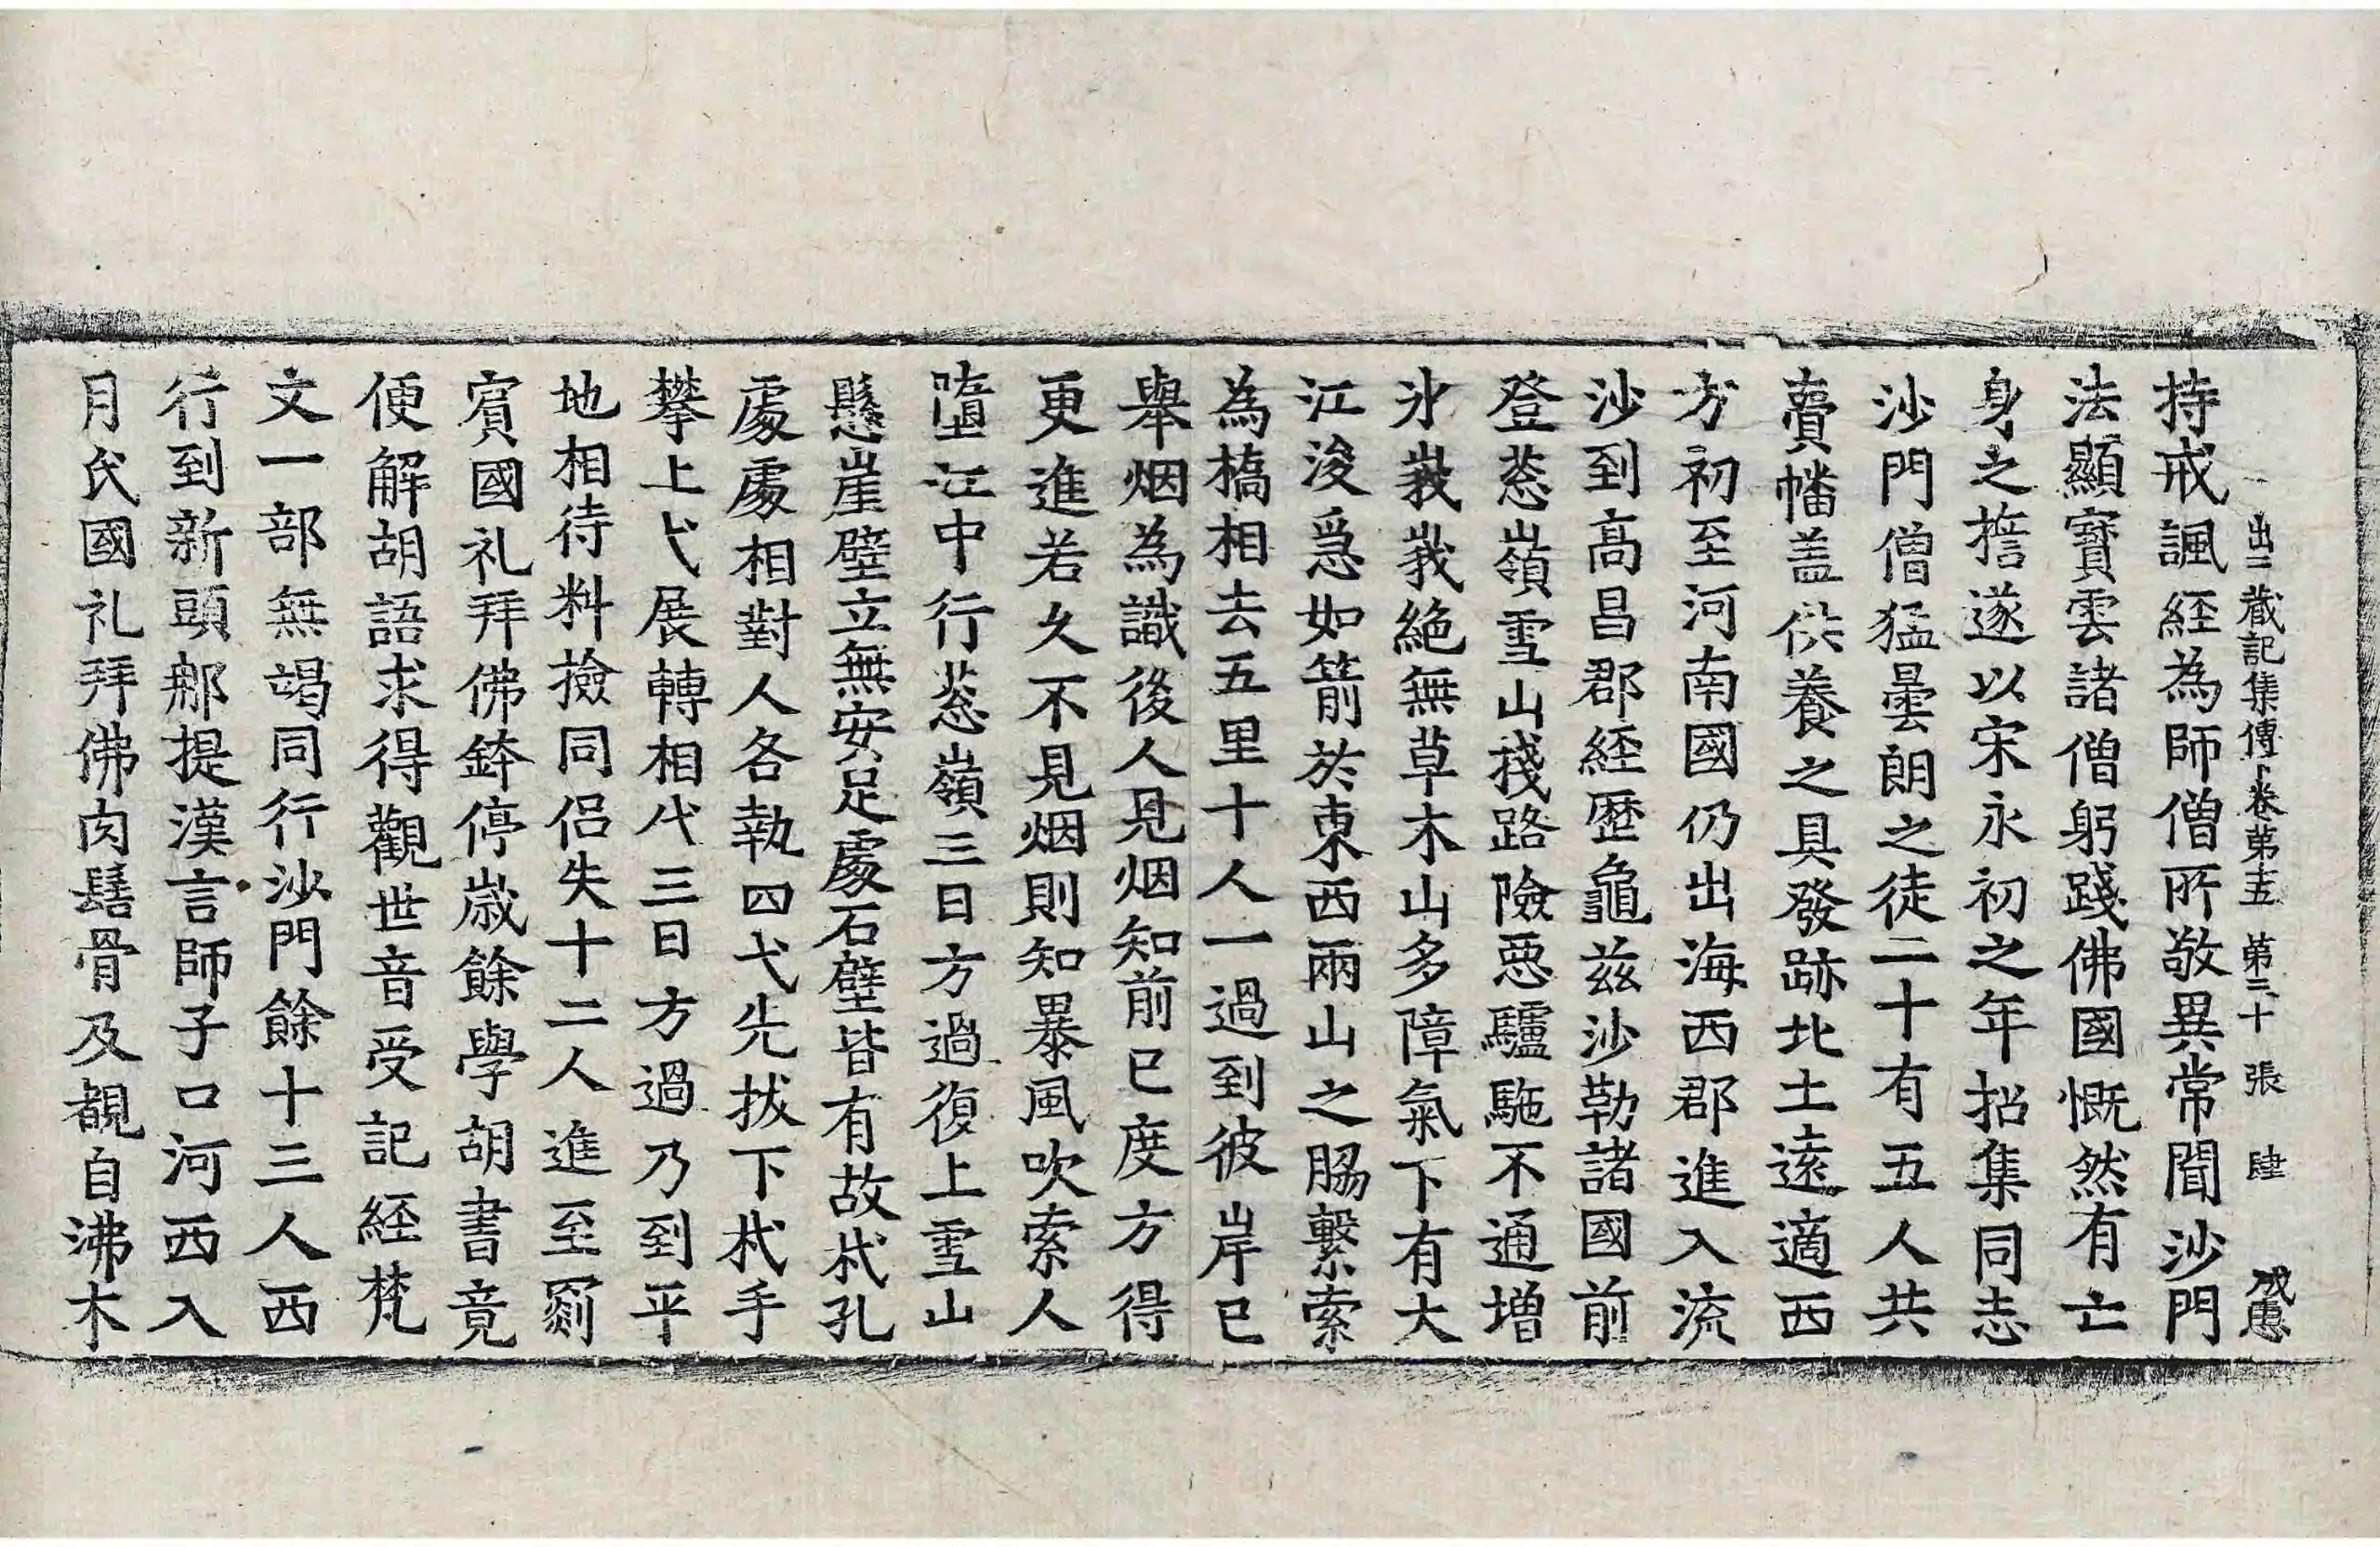 出三藏記集傳下卷第五　第三十張　肆　成惠
持戒諷經為師僧所敬異常聞沙門
法顯寶雲諸僧躬踐佛國慨然有亡
身之誓遂以宋永初之年招集同志
沙門僧猛曇朗之徒二十有五人共
賷幡盖供養之具發跡北土遠適西
方初至河南國仍出海西郡進入流
沙到高昌郡經歷龜茲沙勒諸國前
登䓗嶺雪山棧路險惡驢駞不通增
氷峩峩絶無草木山多障氣下有大
江浚急如箭於東西兩山之脇繫索
為橋相去五里十人一過到彼岸已
舉烟為識後人見烟知前已度方得
更進若久不見烟則知暴風吹索人
墮江中行䓗嶺三日方過復上雪山
懸崖壁立無安足處石壁皆有故杙孔
處處相對人各執四弋先拔下杙手
攀上弋展轉相代三日方過乃到平
地相待料撿同侶失十二人進至罽
賓國礼拜佛鉢停歲餘學胡書竟
便解胡語求得觀世音受記経梵
文一部無竭同行沙門餘十三人西
行到新頭那提漢言師子口河西入
月氏國礼拜佛肉髻骨及覩自沸木